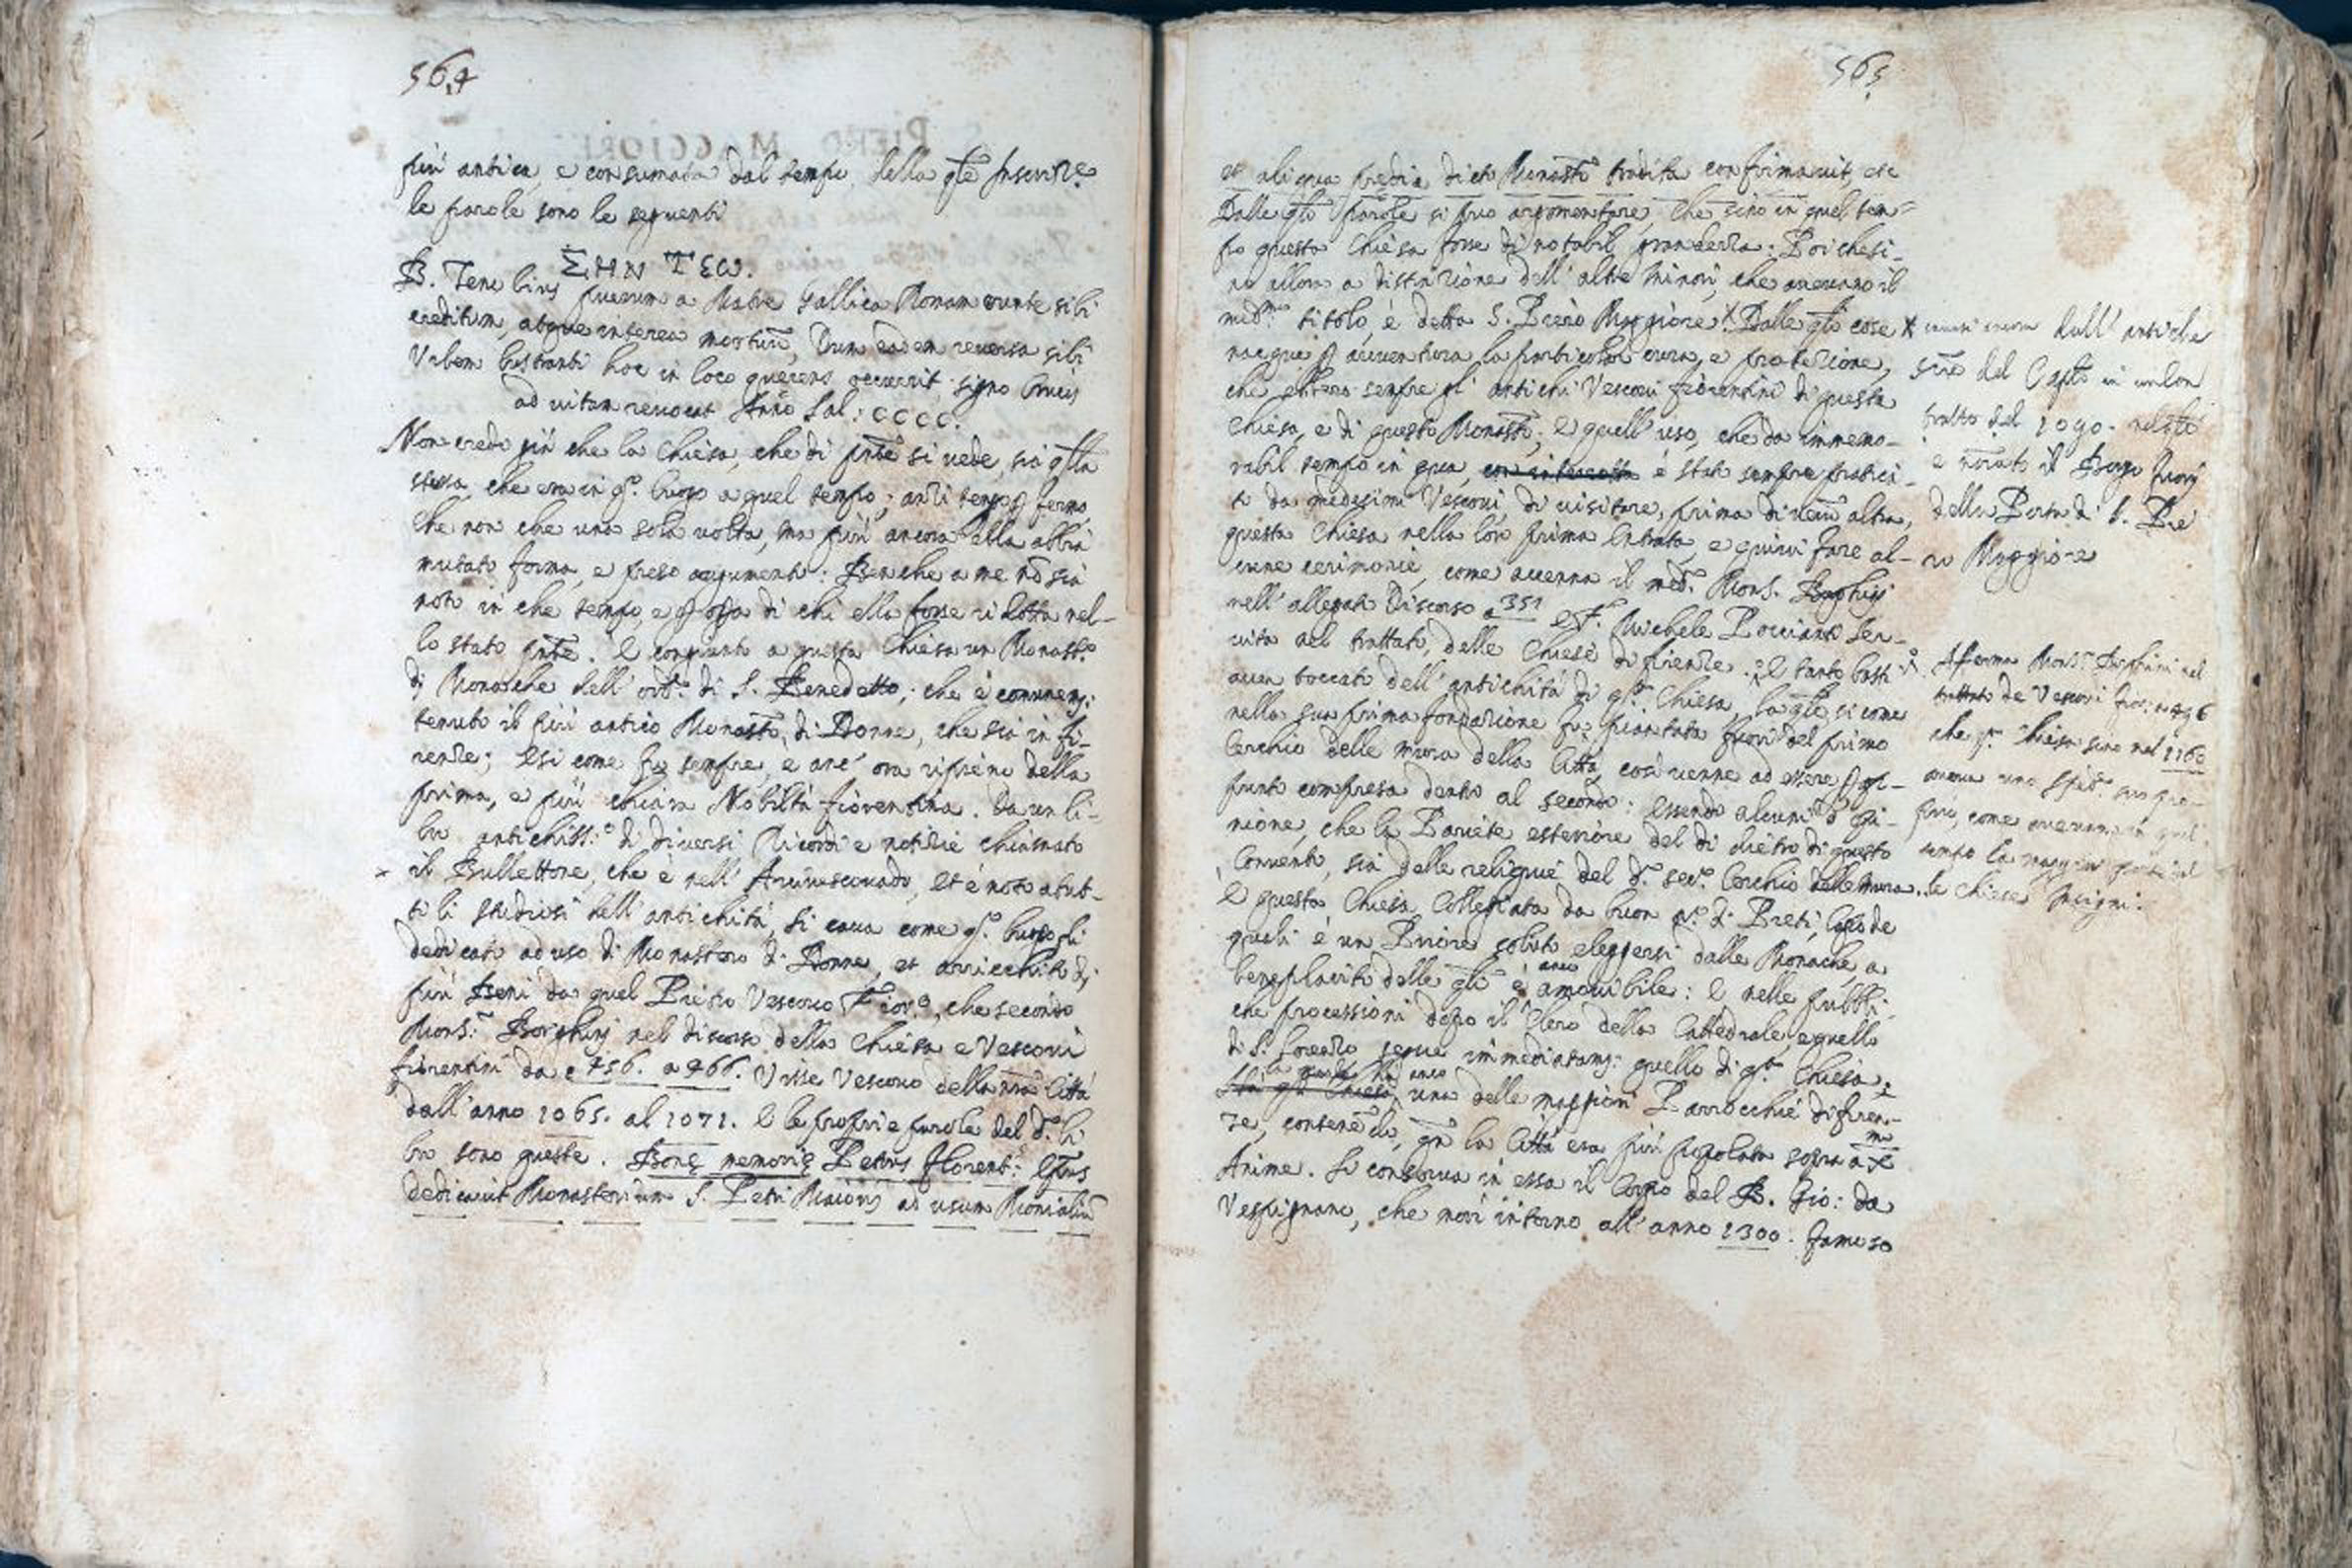 564
più antica, e consumata dal tempo, della qle Inscriz.e
le parole sono le seguenti
ΣHN TEW.
B. Zenobius puerum a Matre Gallica Romam eunte sibi
creditum, atque interea mortuū, Dum eadem reversa sibi
Urbem lustranti hoc in loco querens occurrit, signo Crucis
ad vitam revocat Anno Sal: CCCC.
Non credo già che la Chiesa, che di pnte si vede, sia qlla
stessa, che era in q.o luogo a quel tempo; anzi tengo p fermo,
che non che una sola volta, ma più ancora ella abbia
mutato forma, e preso augumento: Benche a me nō sia
noto in che tempo, e p opa di chi ella fosse ridotta nel-
lo stato pnte. E congiunto a questa Chiesa un Monast.o
di Monache dell' ord.e di S. Benedetto; che è comunem:
tenuto il più antico Monast.o di Donne, che sia in Fi-
renze; E si come fu sempre, e anc' ora ripieno della
prima, e più chiara Nobiltà fiorentina. Da un li-
bro antichiss:o di diversi Ricordi e notizie chiamato
x il Bullettone, che è nell' Arcivescovado, et è noto a tut-
ti li studiosi dell' antichità, si cava come q.o luogo fu
dedicato ad uso di Monastero di Donne, et arricchito di
più Beni da quel Pietro Vescovo Fior.o, che secondo
Mons:r Borghini nel discorso della Chiesa e Vescovi
fiorentini da c 456. a 466. Visse Vescovo della nra Città
dall' anno 1065. al 1071. E le proprie parole del d.o li
bro sono queste. Bonę memorię Petrus florent: Epus
dedicavit Monasterium S. Petri Maioris ad usum Monialiū
565
et aliqua predia dicto Monast.o tradita confirmavit, etc
Dalle qli parole si può argomentare, che sino in quel tem=
po questa Chiesa fosse di notabil grandezza: Poi che si-
no allora a distinzione dell' altre minori, che avevano il
med.mo titolo, è detta S. Piero Maggiore. x Dalle qli cose
nacque p avventura la particolar cura, e protezione,
che ebbero sempre gl' antichi Vescovi fiorentini di questa
Chiesa, e di questo Monast.o; E quell' uso, che da immemo-
rabil tempo in qua, è stato sempre pratica-
to da medesimi Vescovi, di visitare, prima di neūn' altra,
questa Chiesa nella loro prima Entrata, e quivi fare al-
cune cerimonie, come accenna il med.o Mons. Borghini
nell' allegato Discorso a 351 e f. Michele Poccianti Ser-
vita nel trattato delle Chiese di firenze. E tanto basti
aver toccato dell' antichità di q.ta Chiesa, la qle, si come
nella sua prima fondazione fu piantata fuori del primo
Cerchio delle mura della Città, così venne ad essere p ap-
punto compresa dentro al secondo: essendo alcuni d' opi-
nione, che la Pariete esteriore del di dietro di questo
Convento, sia delle reliquie del d.o sec.o Cerchio delle mura.
E questa Chiesa Collegiata da buon n.o di Preti, Capo de
quali è un Priore solito eleggersi dalle Monache, a
beneplacito delle qli è anco amovibile: E nelle pubbli-
che processioni dopo il Clero della Cattedrale, e quello
di S. Lorenzo segue immediatamẽ: quello di q.ta Chiesa;
la quale ha anco una delle maggiori Parrocchie di firen-
ze, contenẽdo, qñ la Città era più popolata sopra a X m
Anime. Si conserva in essa il Corpo del B. Gio: da
Vespignano, che morì intorno all' anno 1300. famoso
x dall' antiche
del Capto in un con
tratto del 1090.
e il Borgo fuori
della Porta di S. Pie
ro Maggiore
Afferma Mons.r Borghini nel
trattato de Vescovi fior. a 496
che q.ta Chiesa sino nel 1160
aveva uno sped.e suo pro-
prio, come avevano in quel
tempo la maggior parte del
le Chiese Insigni.